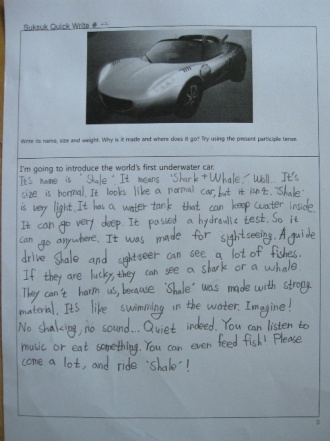 Suksuk Quick Write # --
Write its name, size and weight. Why is it made and where does it go? Try using the present participle tense.
I'm going to introduce the world's first underwater car.
It's name is 'Shale'. It means 'Shark + Whale.' Well.. It's
size is normal. It looks like a normal car, but it isn't. 'Shale'
is very light. It has a water tank that can keep water inside.
It can go very deep. It passed a hydraulic test. So it
can go anywhere. It was made for sightseeing. A guide
drive Shale and sightseer can see a lot of fishes.
If they are lucky, they can see a shark or a whale
They can't harm us, because 'Shale' was made with strong
material. It's like swimming in the water. Imagine!
No shaking, no sound... Quiet indeed. You can listen to
music or eat something. You can even feed fish! Please
come a lot, and ride 'Shale'!